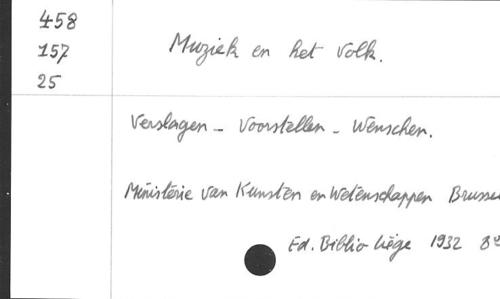 458
157
25
Muziek en het volk.
Verslagen - Voorstellen - Wenschen.
Ministerie van Kunsten en Wetenschappen Brusse
Ed. Biblio Liège 1932 8°